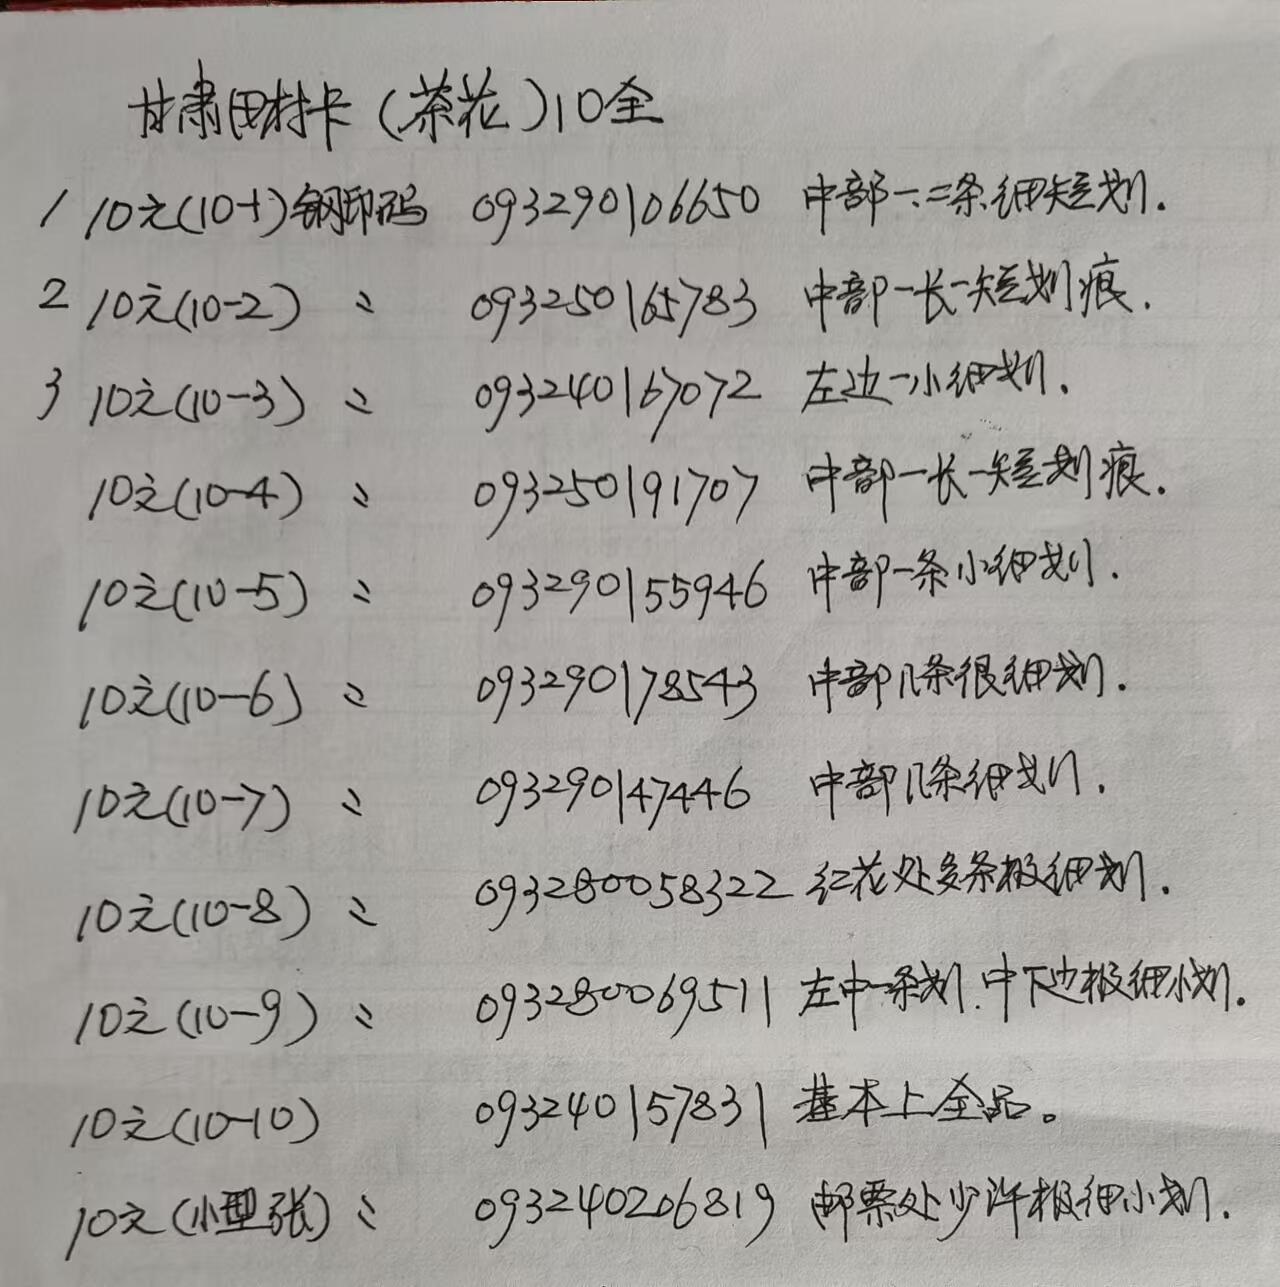 甘肃田村卡（茶花）10全
1 10元(10-1)钢印码 093290106650 中部一.二条细短划.
2 10元(10-2) 〃 093250165783 中部一长一短划痕.
3 10元(10-3) 〃 093240167072 左边一小细划.
10元(10-4) 〃 093250191707 中部一长一短划痕.
10元(10-5) 〃 093290155946 中部一条小细划.
10元(10-6) 〃 093290178543 中部几条很细划.
10元(10-7) 〃 093290147446 中部几条细划.
10元(10-8) 〃 093280058322 红花处多条极细划.
10元(10-9) 〃 093280069511 左中一条划.中下边极细小划.
10元(10-10) 093240157831 基本上全品。
10元(小型张) 〃 093240206819 邮票处少许极细小划.